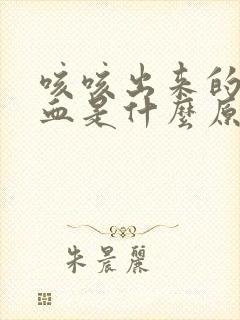 咳咳出来的
血是什麼原
朱晨麗